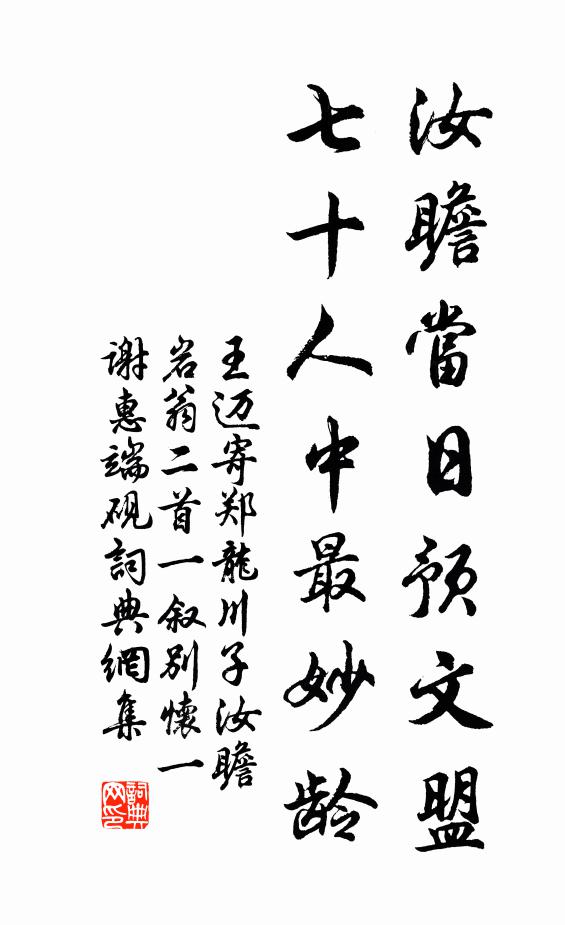 汝瞻當日預文盟
七十人中最妙龄
王迈寄郑龍川子汝瞻
岩翁二首一叙别懷一
谢惠端砚詞典網集
詞典网印